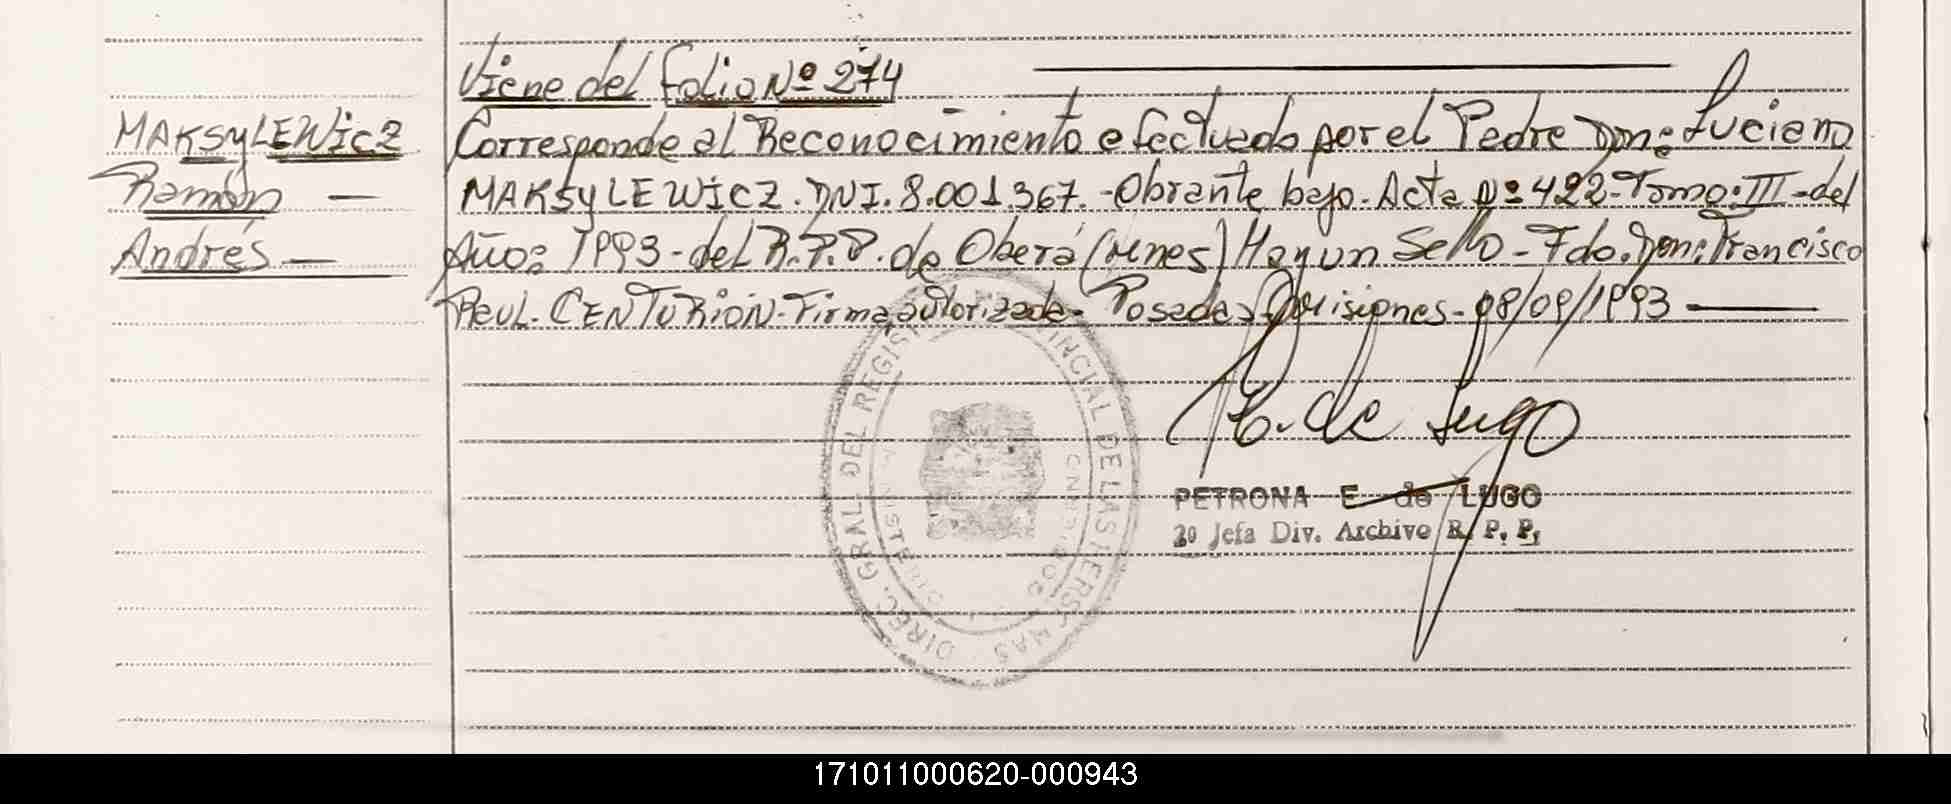 Viene del folio Nº 274
MAKSYLEWICZ
Ramón —
Andrés —
Corresponde al Reconocimiento efectuado por el Padre Don: Luciano
MAKSYLEWICZ. DNI. 8.001.367. - Obrante bajo. Acta Nº 422 - Tomo: III - del
Año: 1993 - del R.P.P. de Oberá (mnes) Hay un Sello - Fdo. Don: Francisco
Raul. CENTURIÓN - Firma autorizada. Posadas, Misiones - 08/09/1993
DIREC. GRAL. DEL REGISTRO PROVINCIAL DE LAS PERSONAS
P. de Lugo
PETRONA E de LUGO
20 Jefa Div. Archivo R. P. P,
171011000620-000943